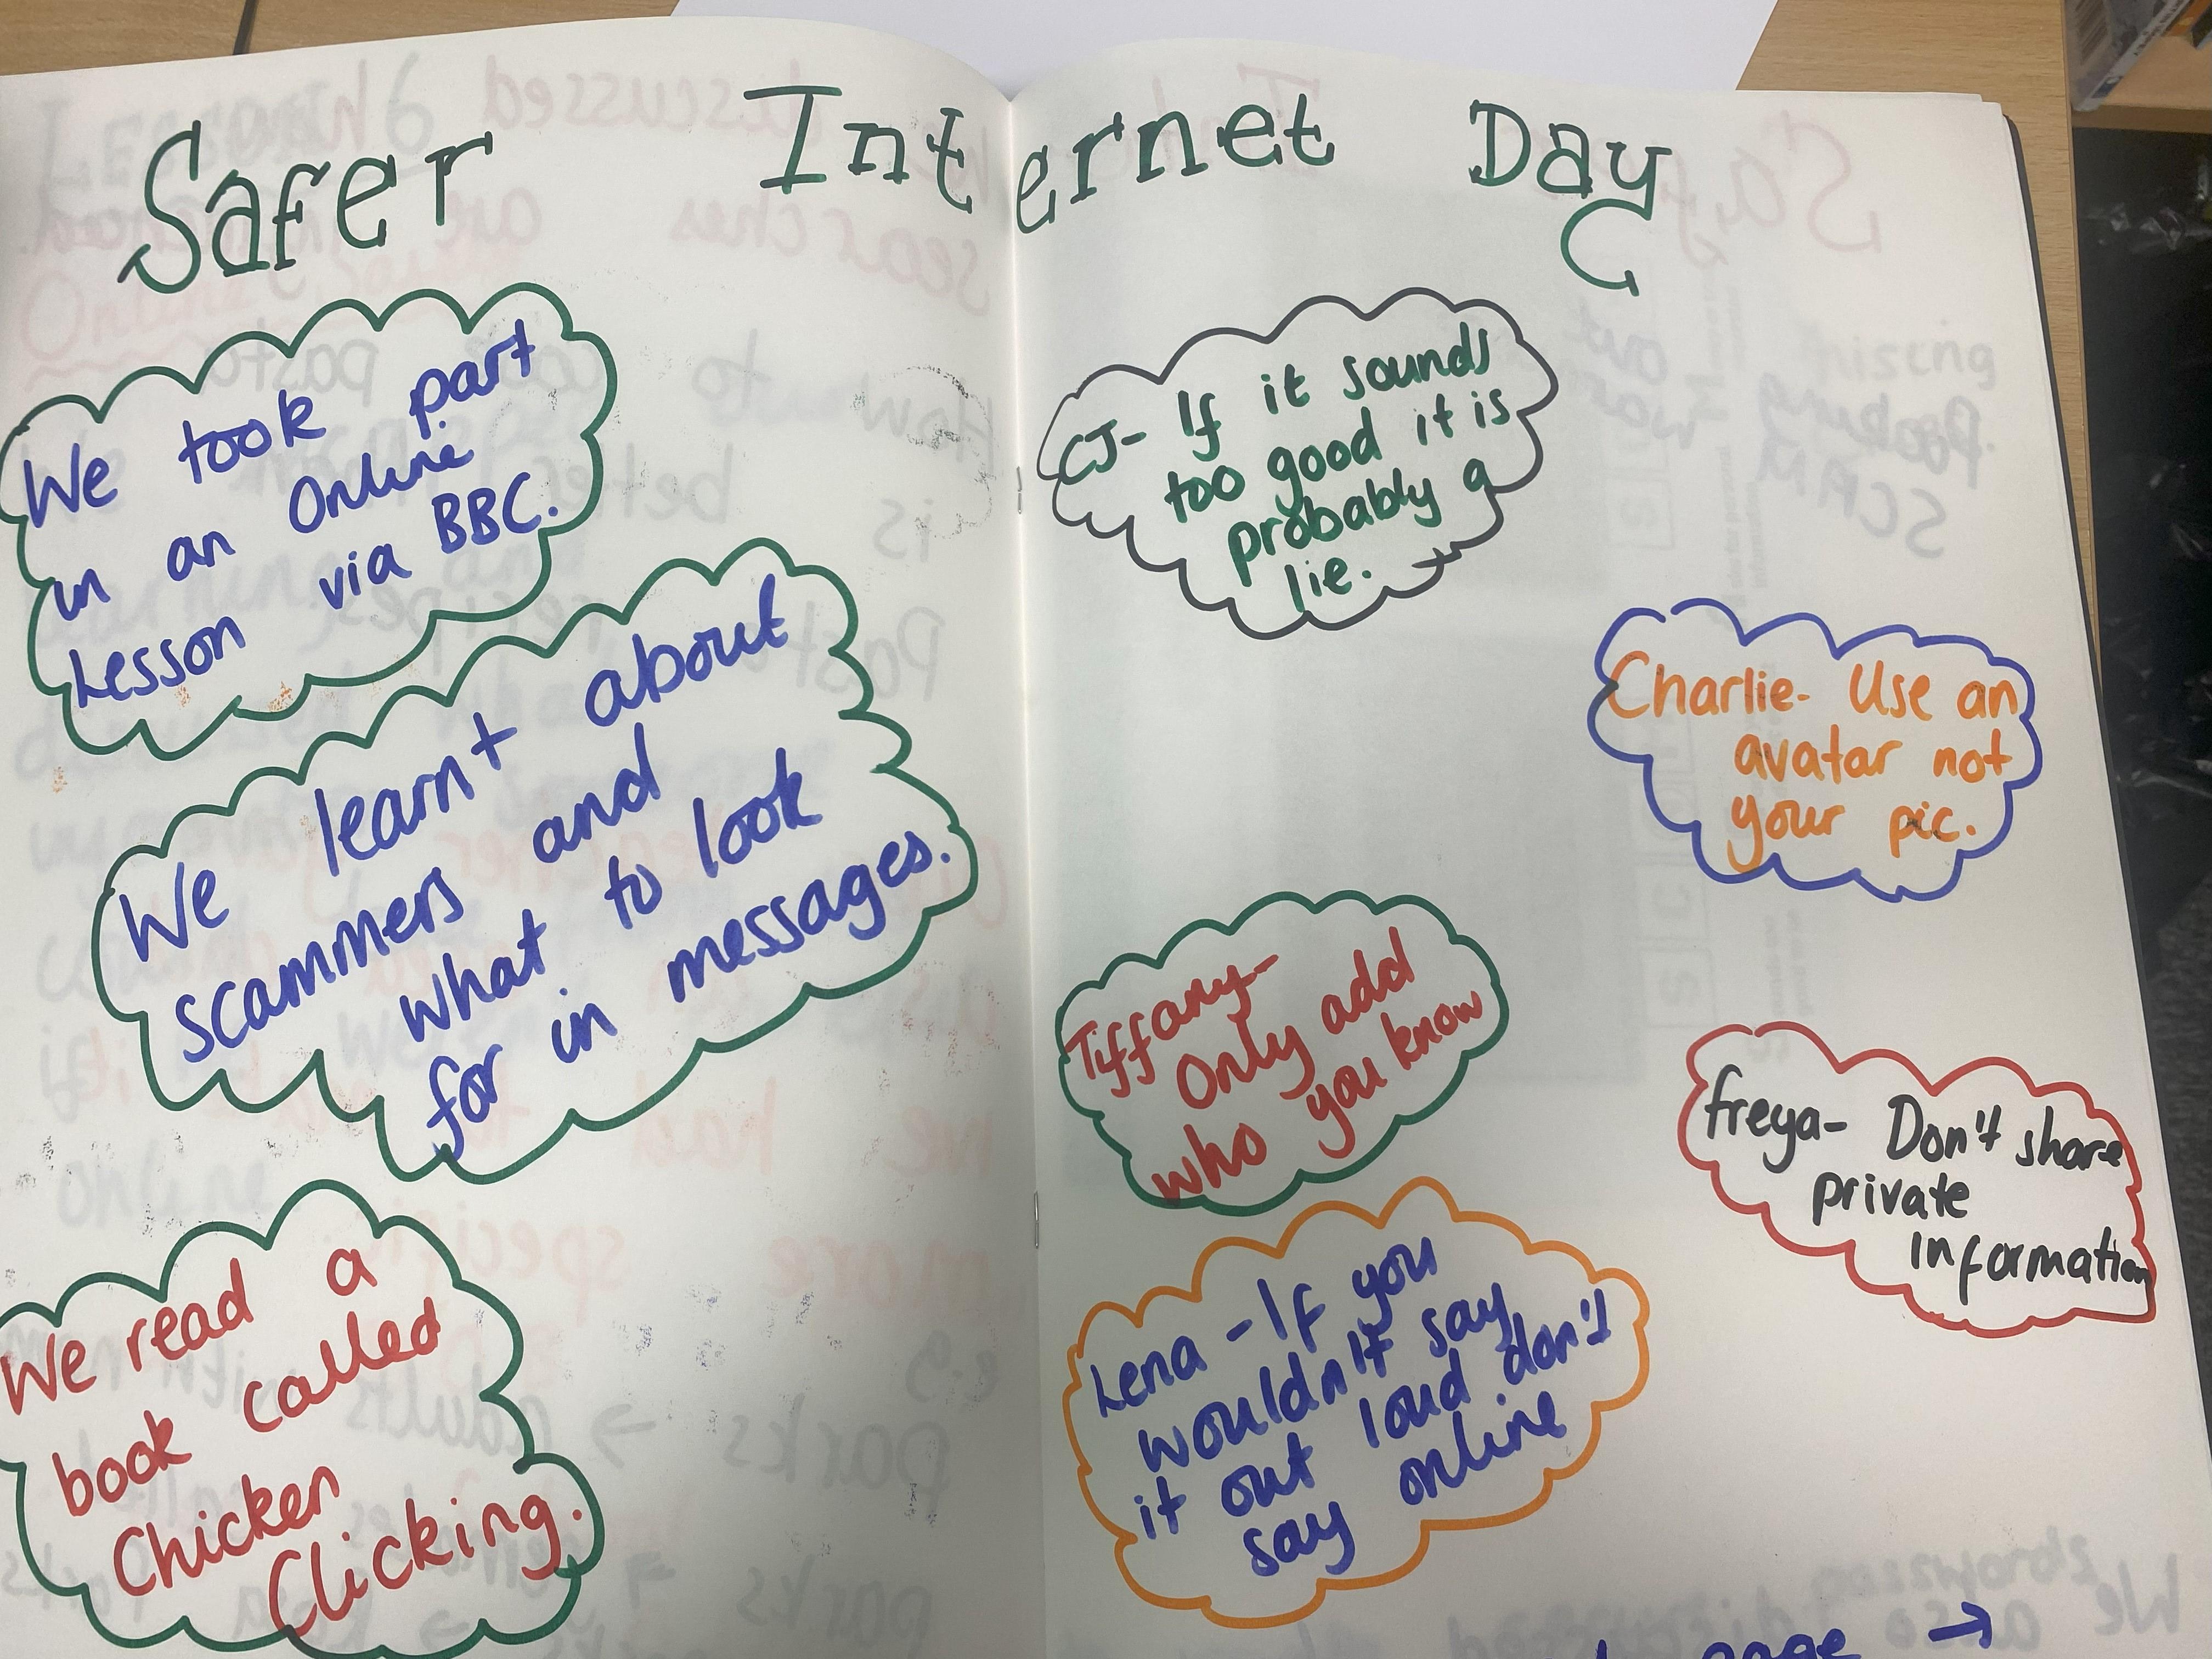 Safer Internet Day
We took part
in an Online
Lesson via BBC.
We learnt about
scammers and
what to look
for in messages.
We read a
book called
Chicken
Clicking.
CJ- If it sounds
too good it is
probably a
lie.
Charlie- Use an
avatar not
your pic.
Tiffany-
Only add
who you know
Freya- Don't share
private
information
Lena - If you
wouldn't say
it out loud don't
say online
page →